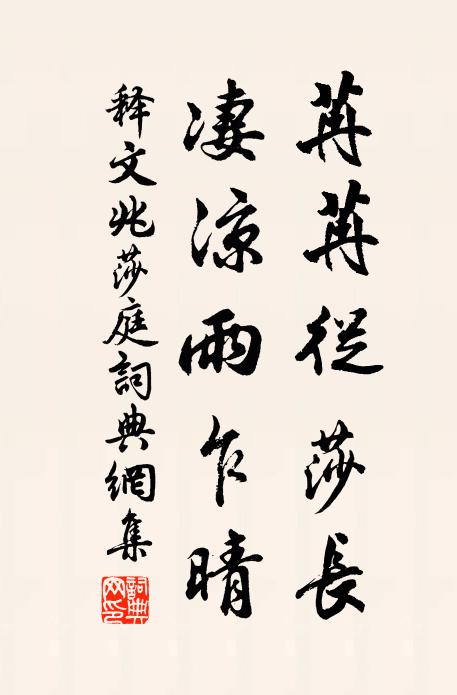 苒苒從莎長
凄涼雨乍晴
释文兆莎庭詞典網集
詞典網印